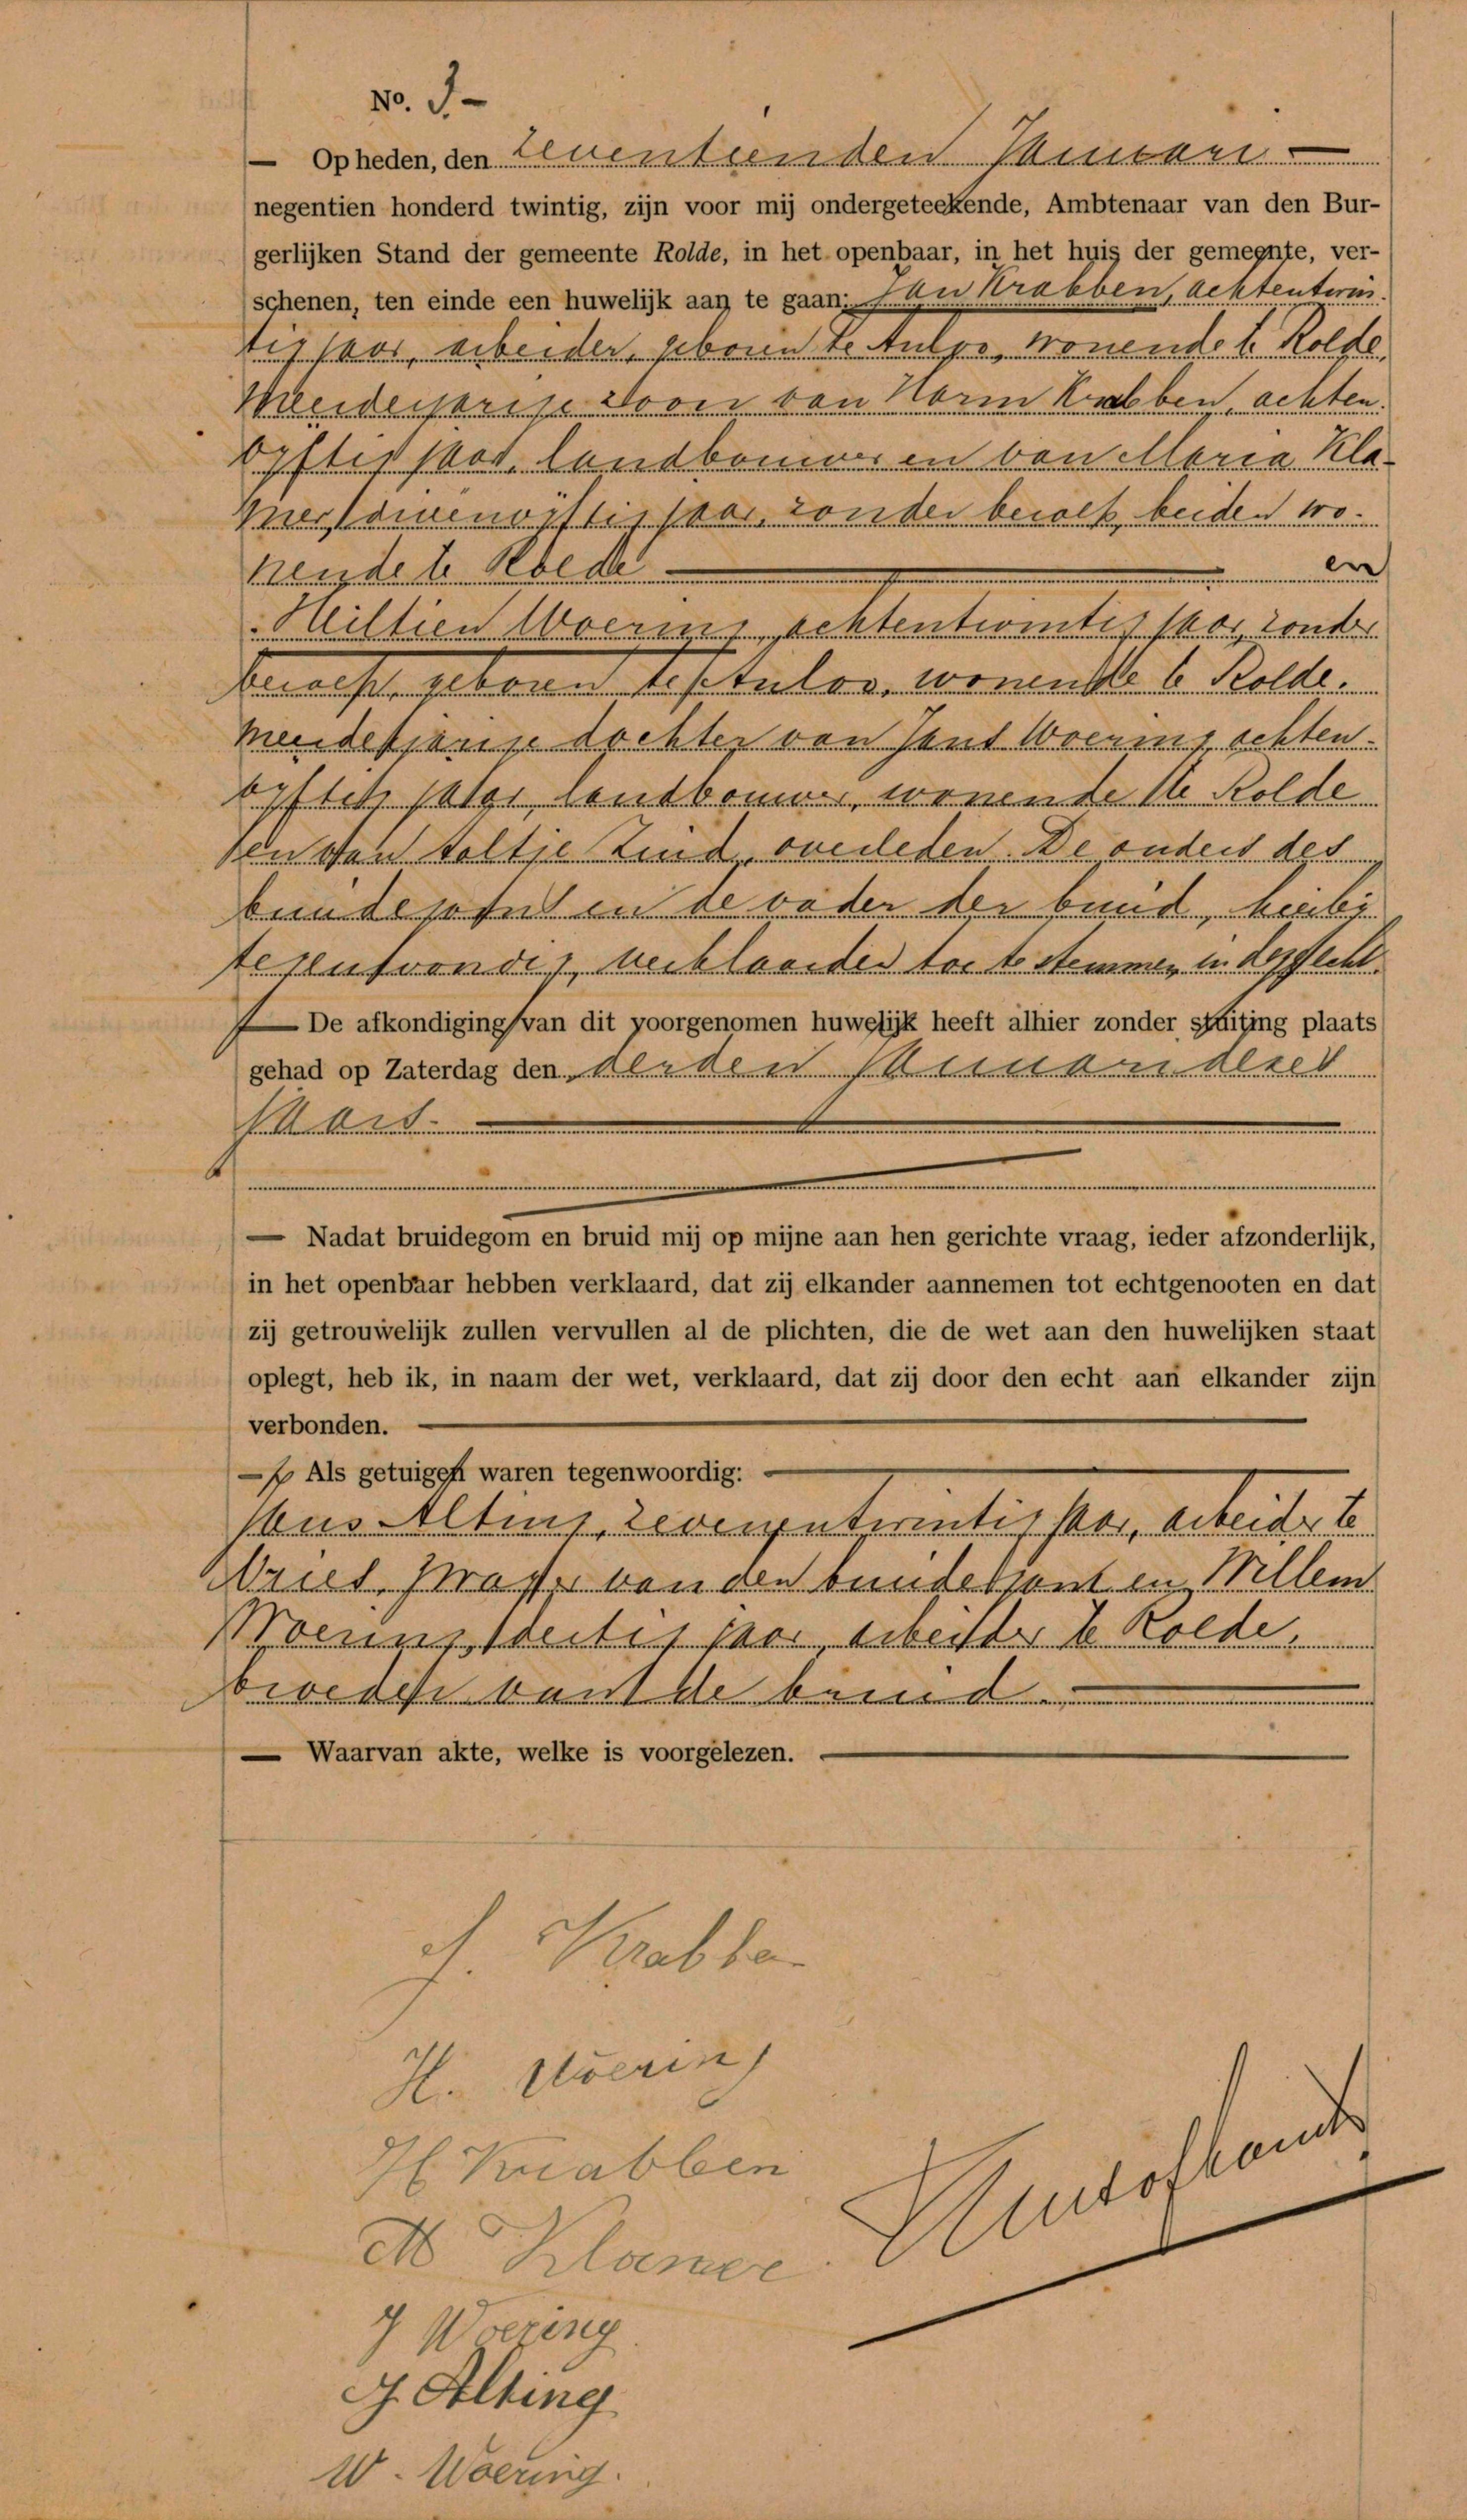 No. 3.-
— Op heden, den zeventienden Januari —
negentien honderd twintig, zijn voor mij ondergeteekende, Ambtenaar van den Bur-
gerlijken Stand der gemeente Rolde, in het openbaar, in het huis der gemeente, ver-
schenen, ten einde een huwelijk aan te gaan: Jan Krabben, achtentwin-
tig jaar, arbeider, geboren te Anloo, wonende te Rolde,
meerderjarige zoon van Harm Krabben, achten-
vyftig jaar, landbouwer en van Maria Kla-
mer, zevenvyftig jaar, zonder beroep, beiden wo-
nende te Rolde — en
Hiltien Woering, achtentwintig jaar, zonder
beroep, geboren te Anloo, wonende te Rolde,
meerderjarige dochter van Jans Woering, achten-
vyftig jaar, landbouwer, wonende te Rolde
en van Aaltje Zuid, overleden. De ouders des
bruidegoms en de vader der bruid, hierbij
tegenwoordig, verklaarden toe te stemmen in deze echt.
— De afkondiging van dit voorgenomen huwelijk heeft alhier zonder stuiting plaats
gehad op Zaterdag den derden Januari dezes
jaars. —
— Nadat bruidegom en bruid mij op mijne aan hen gerichte vraag, ieder afzonderlijk,
in het openbaar hebben verklaard, dat zij elkander aannemen tot echtgenooten en dat
zij getrouwelijk zullen vervullen al de plichten, die de wet aan den huwelijken staat
oplegt, heb ik, in naam der wet, verklaard, dat zij door den echt aan elkander zijn
verbonden. —
— Als getuigen waren tegenwoordig: —
Jans Alting, zevenentwintig jaar, arbeider te
Vries, zwager van den bruidegom en Willem
Woering, dertig jaar, arbeider te Rolde,
broeder van de bruid. —
— Waarvan akte, welke is voorgelezen. —
J. Krabben
H. Woering
H Krabben
M Klamer
J Woering
J. Alting
W. Woering.